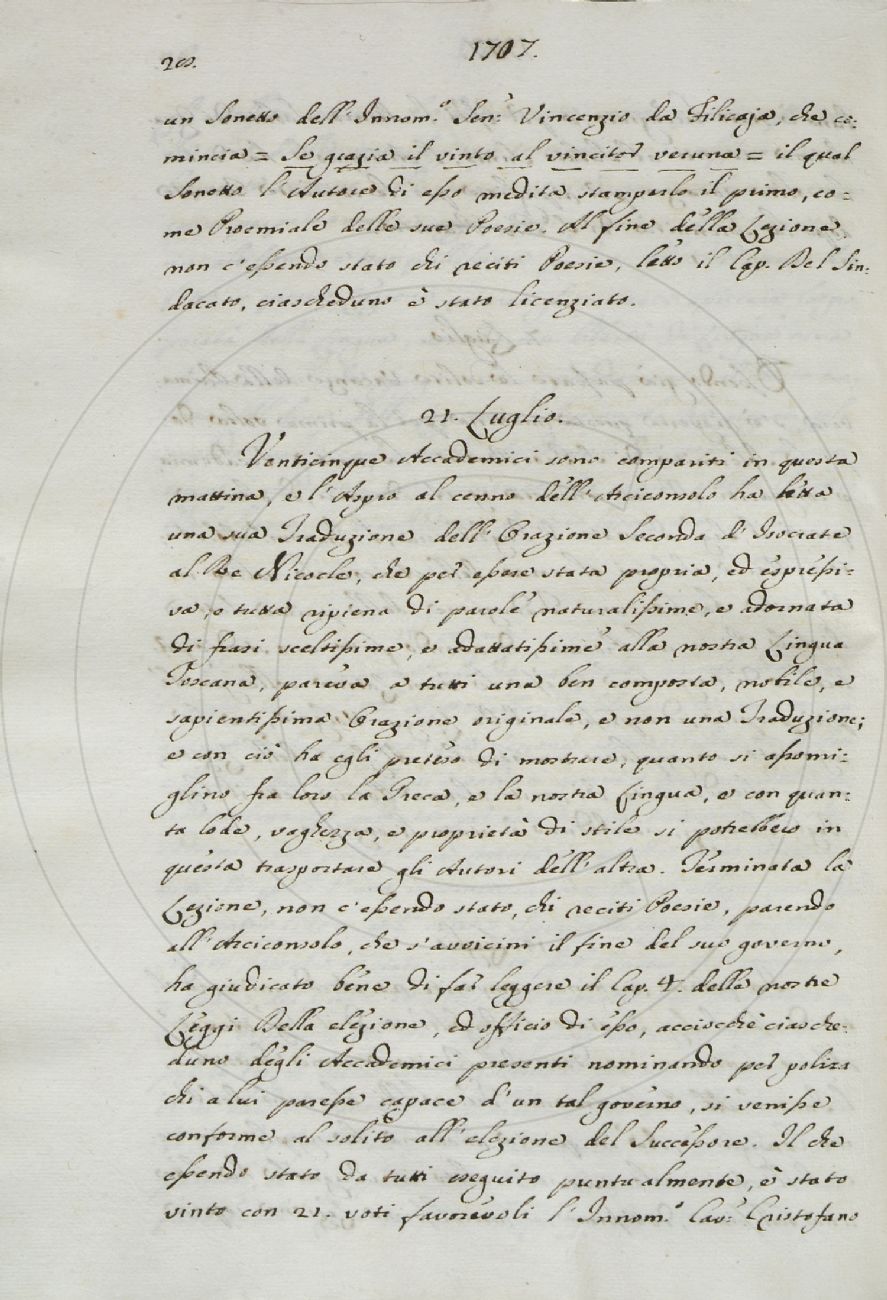 1707.
20.
un Sonetto dell'Innom.º Sen.r Vincenzio da Filicaja, che co:
mincia = Se grazia il vinto al vincitor veruna = il qual
Sonetto l'Autore di esso medita stamparlo il primo, co=
me Proemiale delle sue Poesie. Al fine della Lezione
non c'essendo stato chi reciti Poesie, letto il Cap. Del Sin:
dacato, ciascheduno è stato licenziato.
21. Luglio.
Venticinque Accademici sono compariti in questa
mattina, e l'Aspro al cenno dell'Arciconsolo ha letta
una sua Traduzione dell'Orazione Seconda d'Isocrate
al Re Nicocle, che per essere stata propria, ed espressi=
va, e tutta ripiena di parole naturalissime, e adornata
di frasi sceltissime, e adattatissime alla nostra Lingua
Toscana, pareva a tutti una ben composta, nobile, e
sapientissima Orazione originale, e non una Traduzione;
e con ciò ha egli preteso di mostrare, quanto si assomi=
glino fra loro la Greca, e la nostra Lingua, e con quan:
ta lode, vaghezza, e proprietà di stile si potrebbero in
questa trasportare gli Autori dell'altra. Terminata la
Lezione, non c'essendo stato, chi reciti Poesie, parendo
all'Arciconsolo, che s'avvicini il fine del suo governo,
ha giudicato bene di far leggere il Cap. 4. delle nostre
Leggi Della elezione, ed officio di esso, acciocchè ciasche:
duno degli Accademici presenti nominando per poliza
chi a lui paresse capace d'un tal governo, si venisse
conforme al solito all'elezione del Successore. Il che
essendo stato da tutti eseguito puntualmente, è stato
vinto con 21. voti favorevoli l'Innom.º Cav.r Cristofano